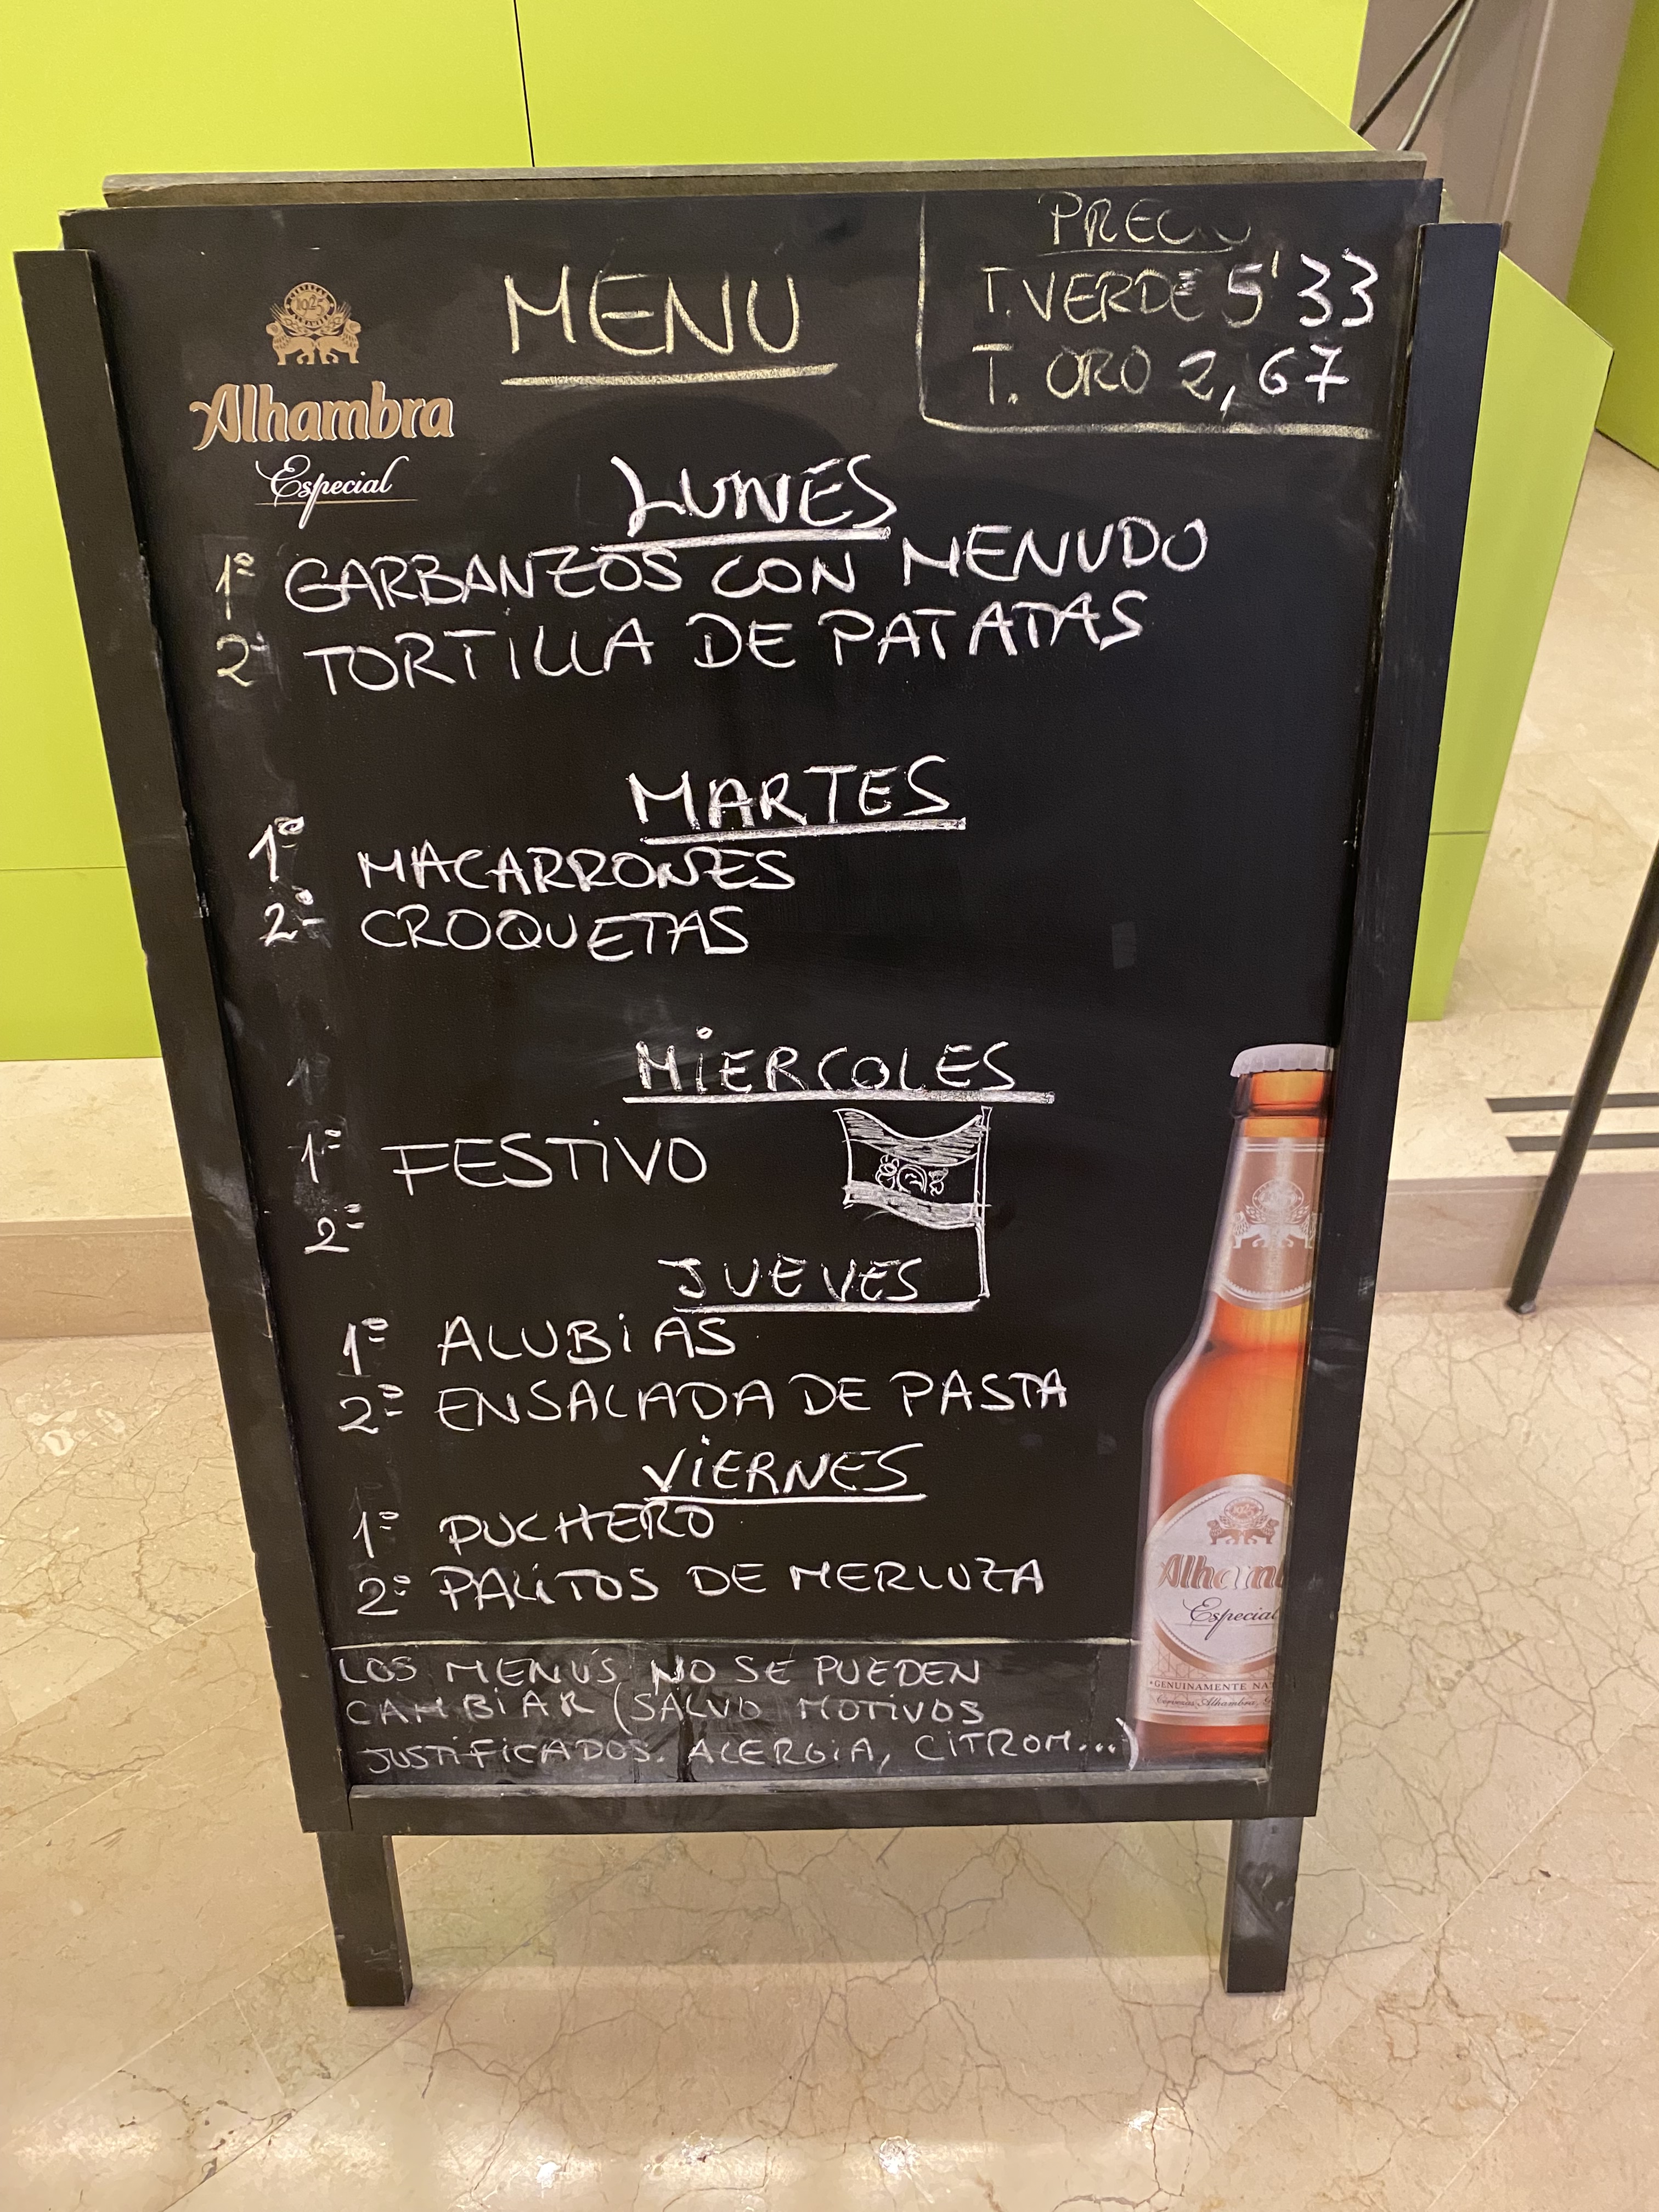 1925
Alhambra
Especial
MENU
PRECIO
T. VERDE 5'33
T. ORO 2,67
LUNES
1º GARBANZOS CON MENUDO
2º TORTILLA DE PATATAS
MARTES
1º MACARRONES
2º CROQUETAS
MIERCOLES
1º FESTIVO
2º
JUEVES
1º ALUBIAS
2º ENSALADA DE PASTA
VIERNES
1º PUCHERO
2º PALITOS DE MERLUZA
LOS MENUS NO SE PUEDEN
CAMBIAR (SALVO MOTIVOS
JUSTIFICADOS. ALERGIA, CITROM...)
Alhamb
Especial
GENUINAMENTE NA
Cervezas Alhambra, G